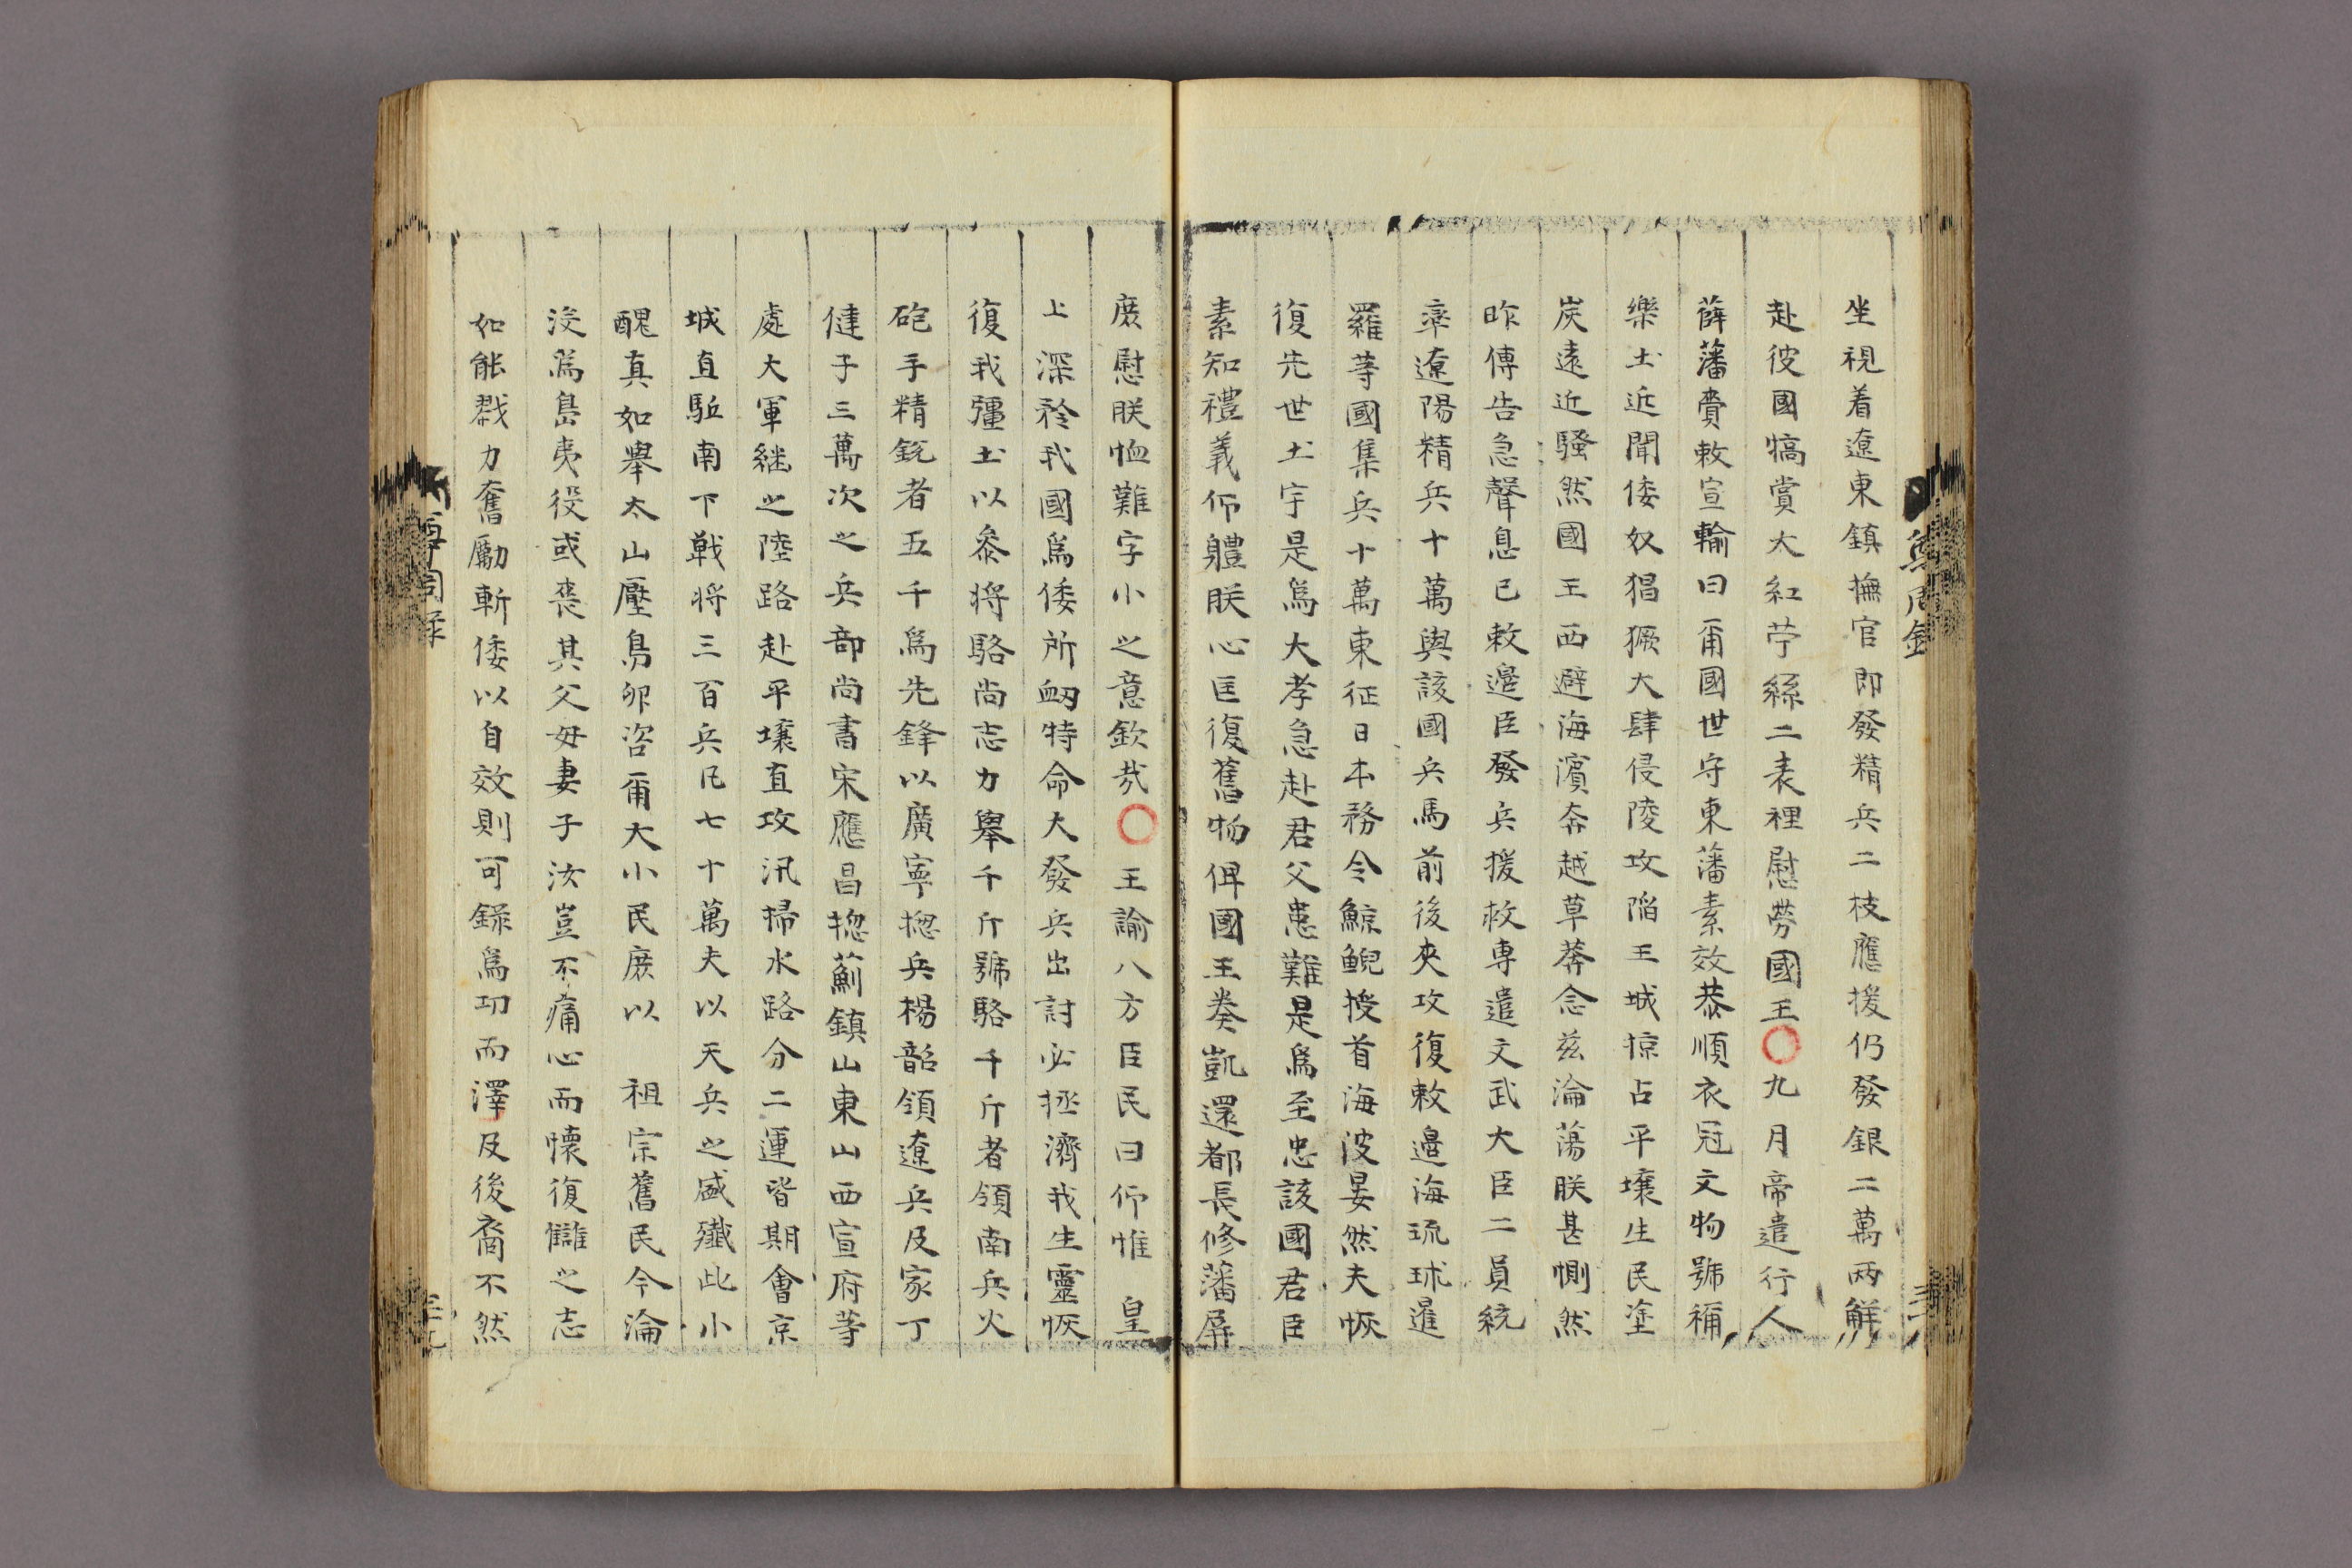 坐視着遼東鎮撫官即發精兵二枝應援仍發銀二萬兩解
赴彼國犒賞大紅苧絲二表裡慰勞國王○九月帝遣行人
薛藩賫敕宣輸曰甭國世守東藩素效恭順衣冠文物號稱
樂土近聞倭奴猖獗大肆侵陵攻陥王城掠占平壤生民塗
炭遠近騷然國王西避海濱奔越草莽念兹淪蕩朕甚惻然
昨傳告急聲息已敕邊臣發兵援救專遣文武大臣二員統
率遼陽精兵十萬與該國兵馬前後夾攻復敕邉海琉球暹
羅等國集兵十萬東征日本務令鯨鯢授首海波晏然夫恢
復先世土宇是爲大孝急赴君父患難是爲至忠該國君臣
素知禮義仰軆朕心匡復舊物俾國王奏凱還都長修藩屏
庶慰朕恤難字小之意欽哉○王諭八方臣民曰仰惟 皇
上深矜我國爲倭所衂特命大發兵出討必拯濟我生靈恢
復我彊土以叅將駱尚志力擧千斤號駱千斤者領南兵火
砲手精銳者五千爲先鋒以廣寧摠兵楊韶領遼兵及家丁
健子三萬次之兵部尚書宋應昌摠薊鎮山東山西宣府等
處大軍継之陸路赴平壤直攻汛掃水路分二運皆期會京
城直駈南下戰将三百兵凡七十萬夫以天兵之盛殲此小
醜真如擧太山壓鳥卵咨甭大小民庶以 祖宗舊民今淪
沒爲島夷役或喪其父母妻子汝豈不痛心而懷復讎之志
如能戮力奮勵斬倭以自效則可錄爲功而澤及後裔不然